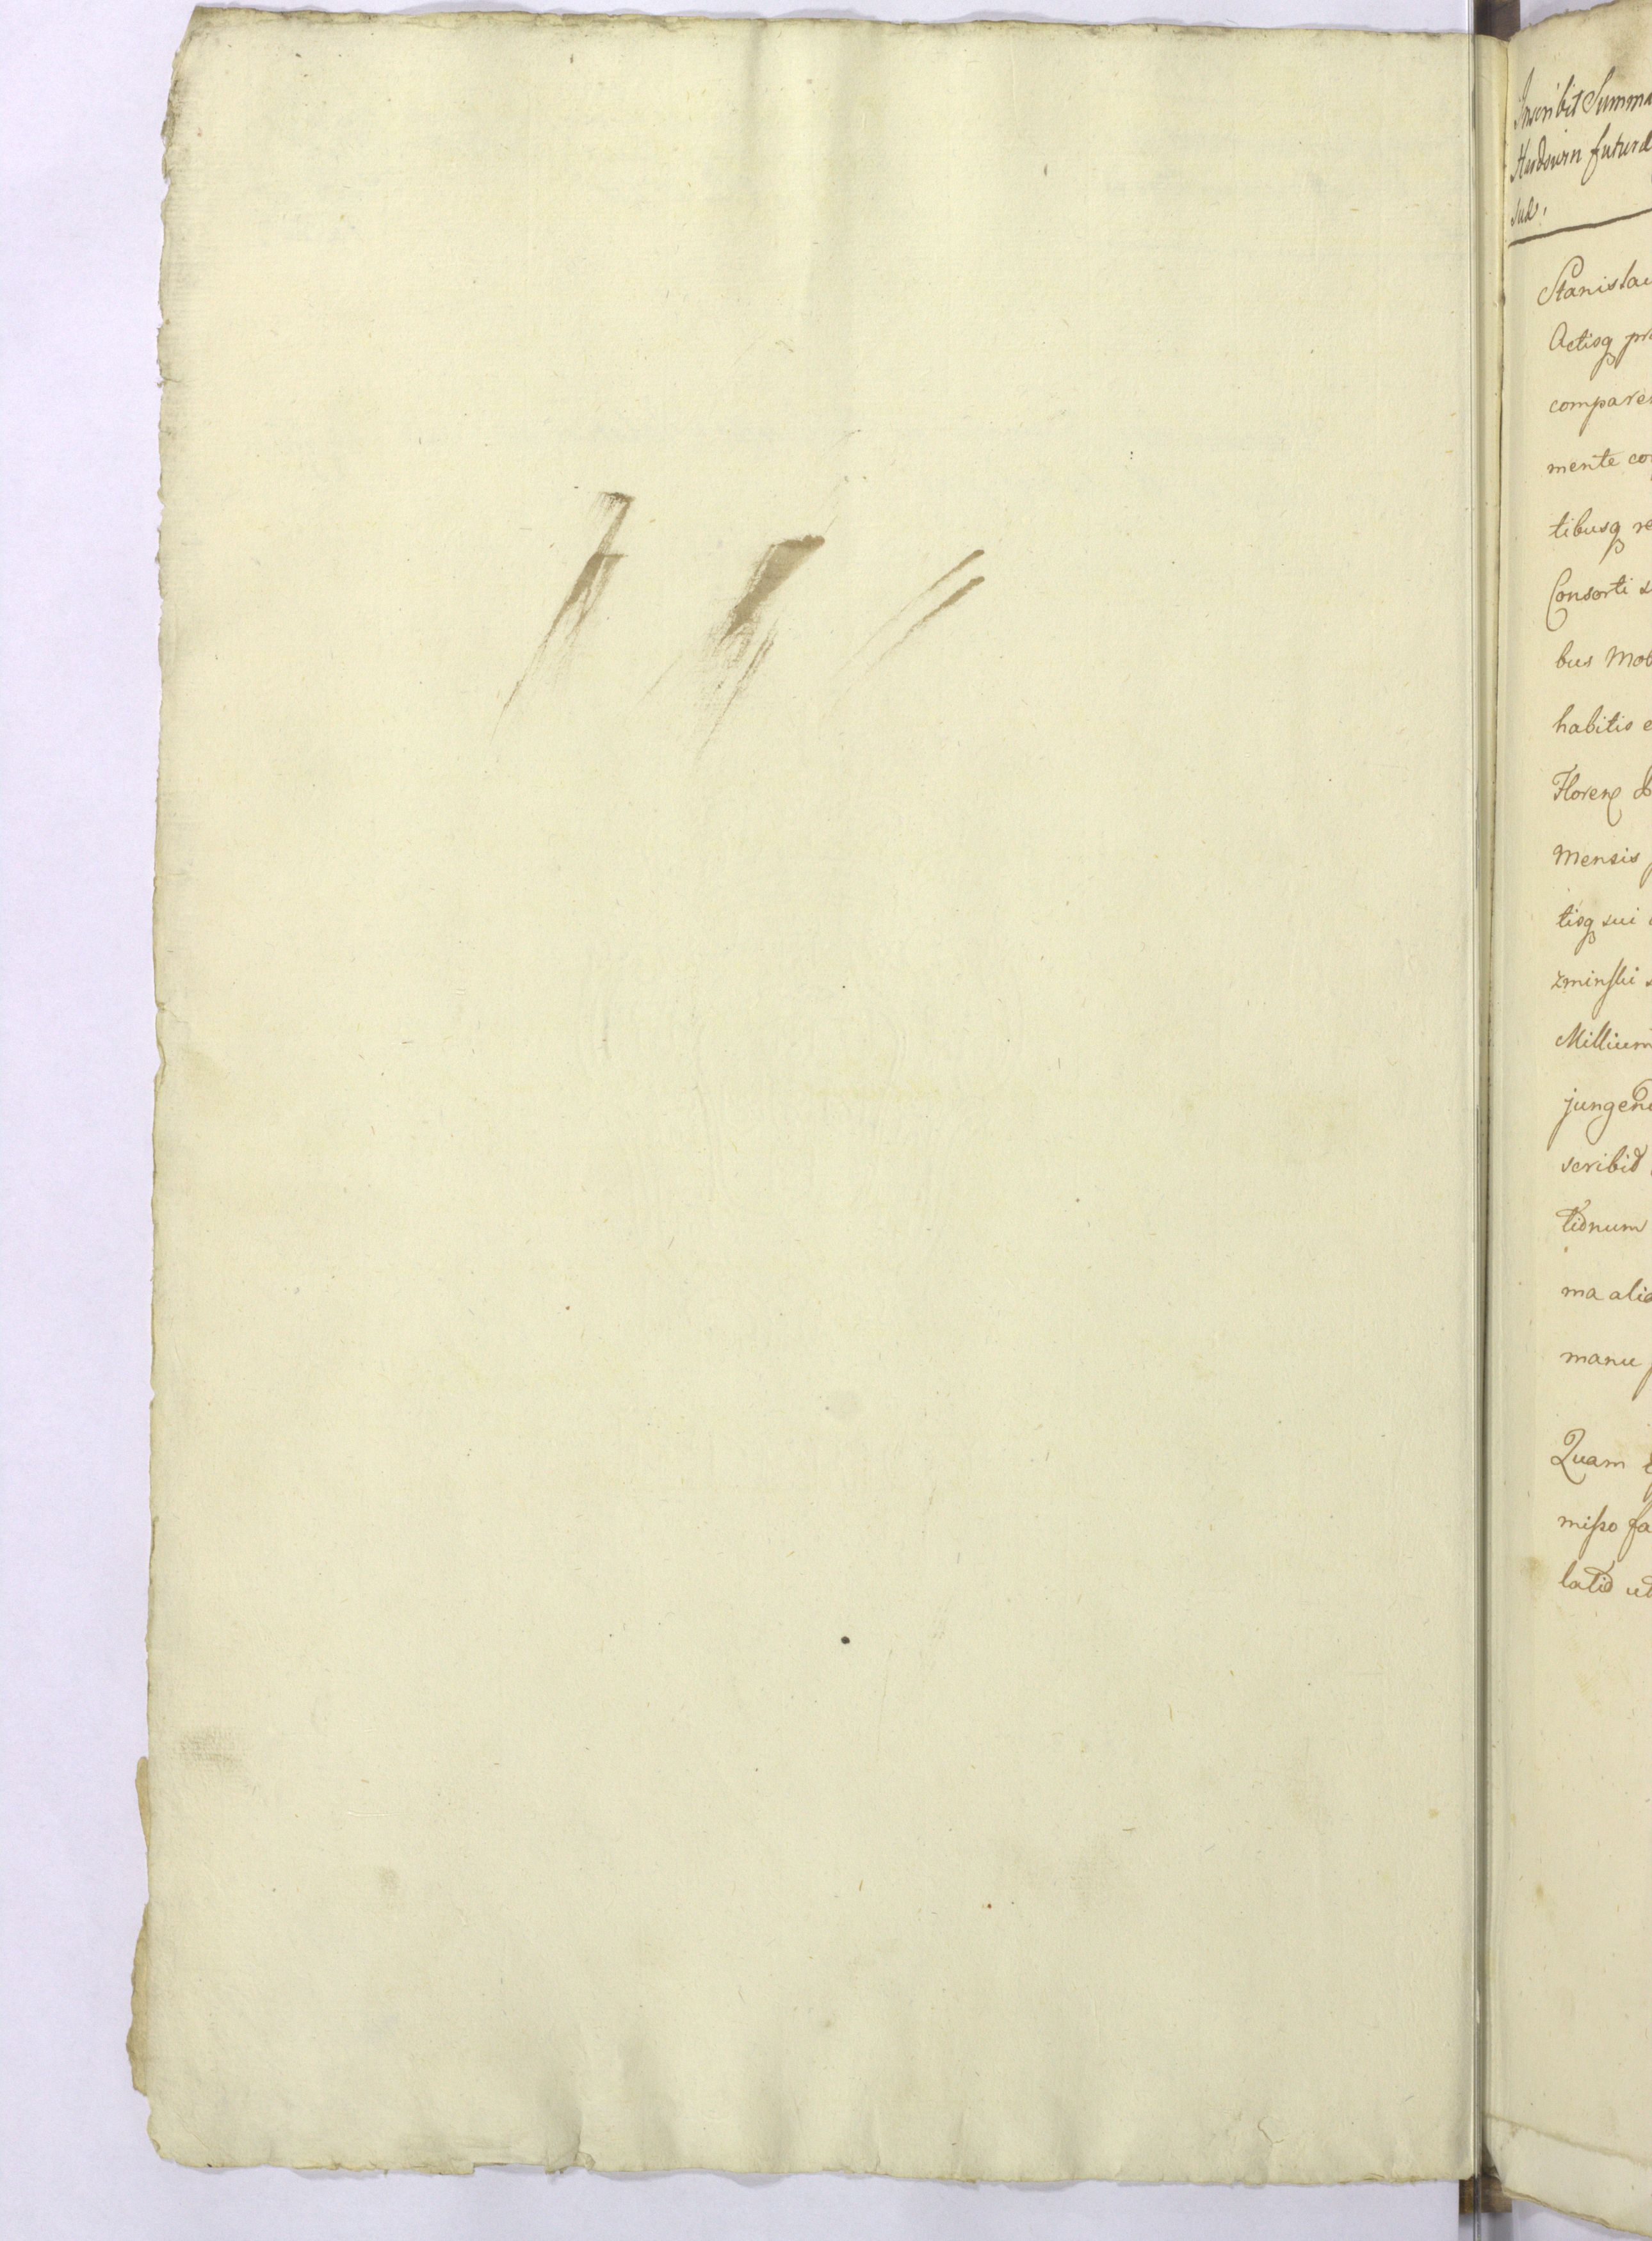 Inscribit Summa
futura
sua.
Stanislau
Actisq pra
compare
mente co
tibusq re
Consorti s
bus Mob
habitis e
Floren
Mensis
tisq sui
zminski s
Millium
jungen
scribit
tionum
ma alia
manu p
Quam
misso fa
latio ut